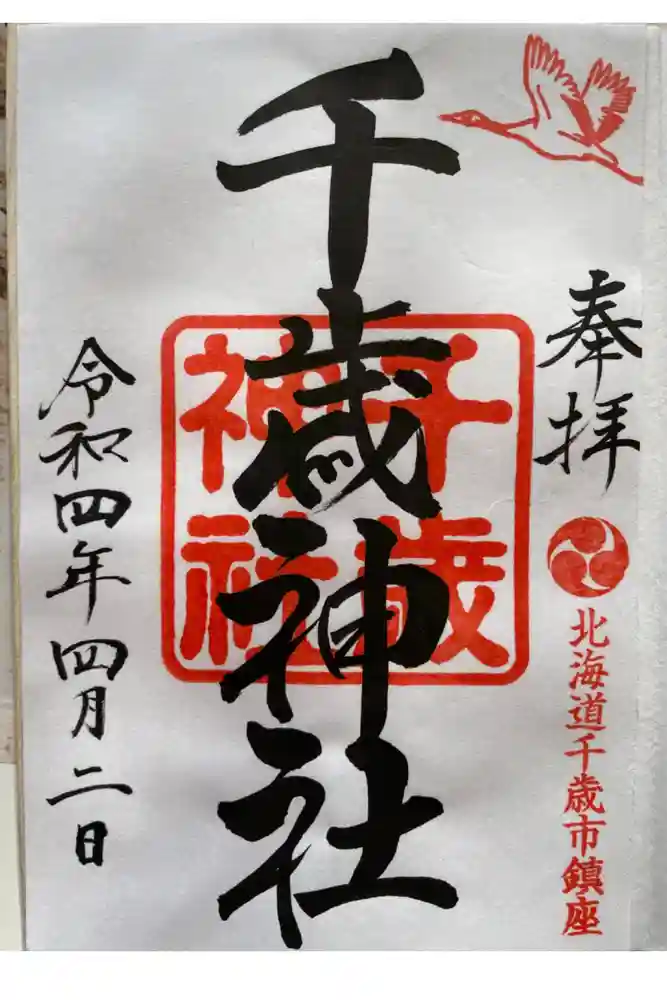 奉拝
北海道千歳市鎮座
千歳神社
千歳
神社
令和四年四月二日